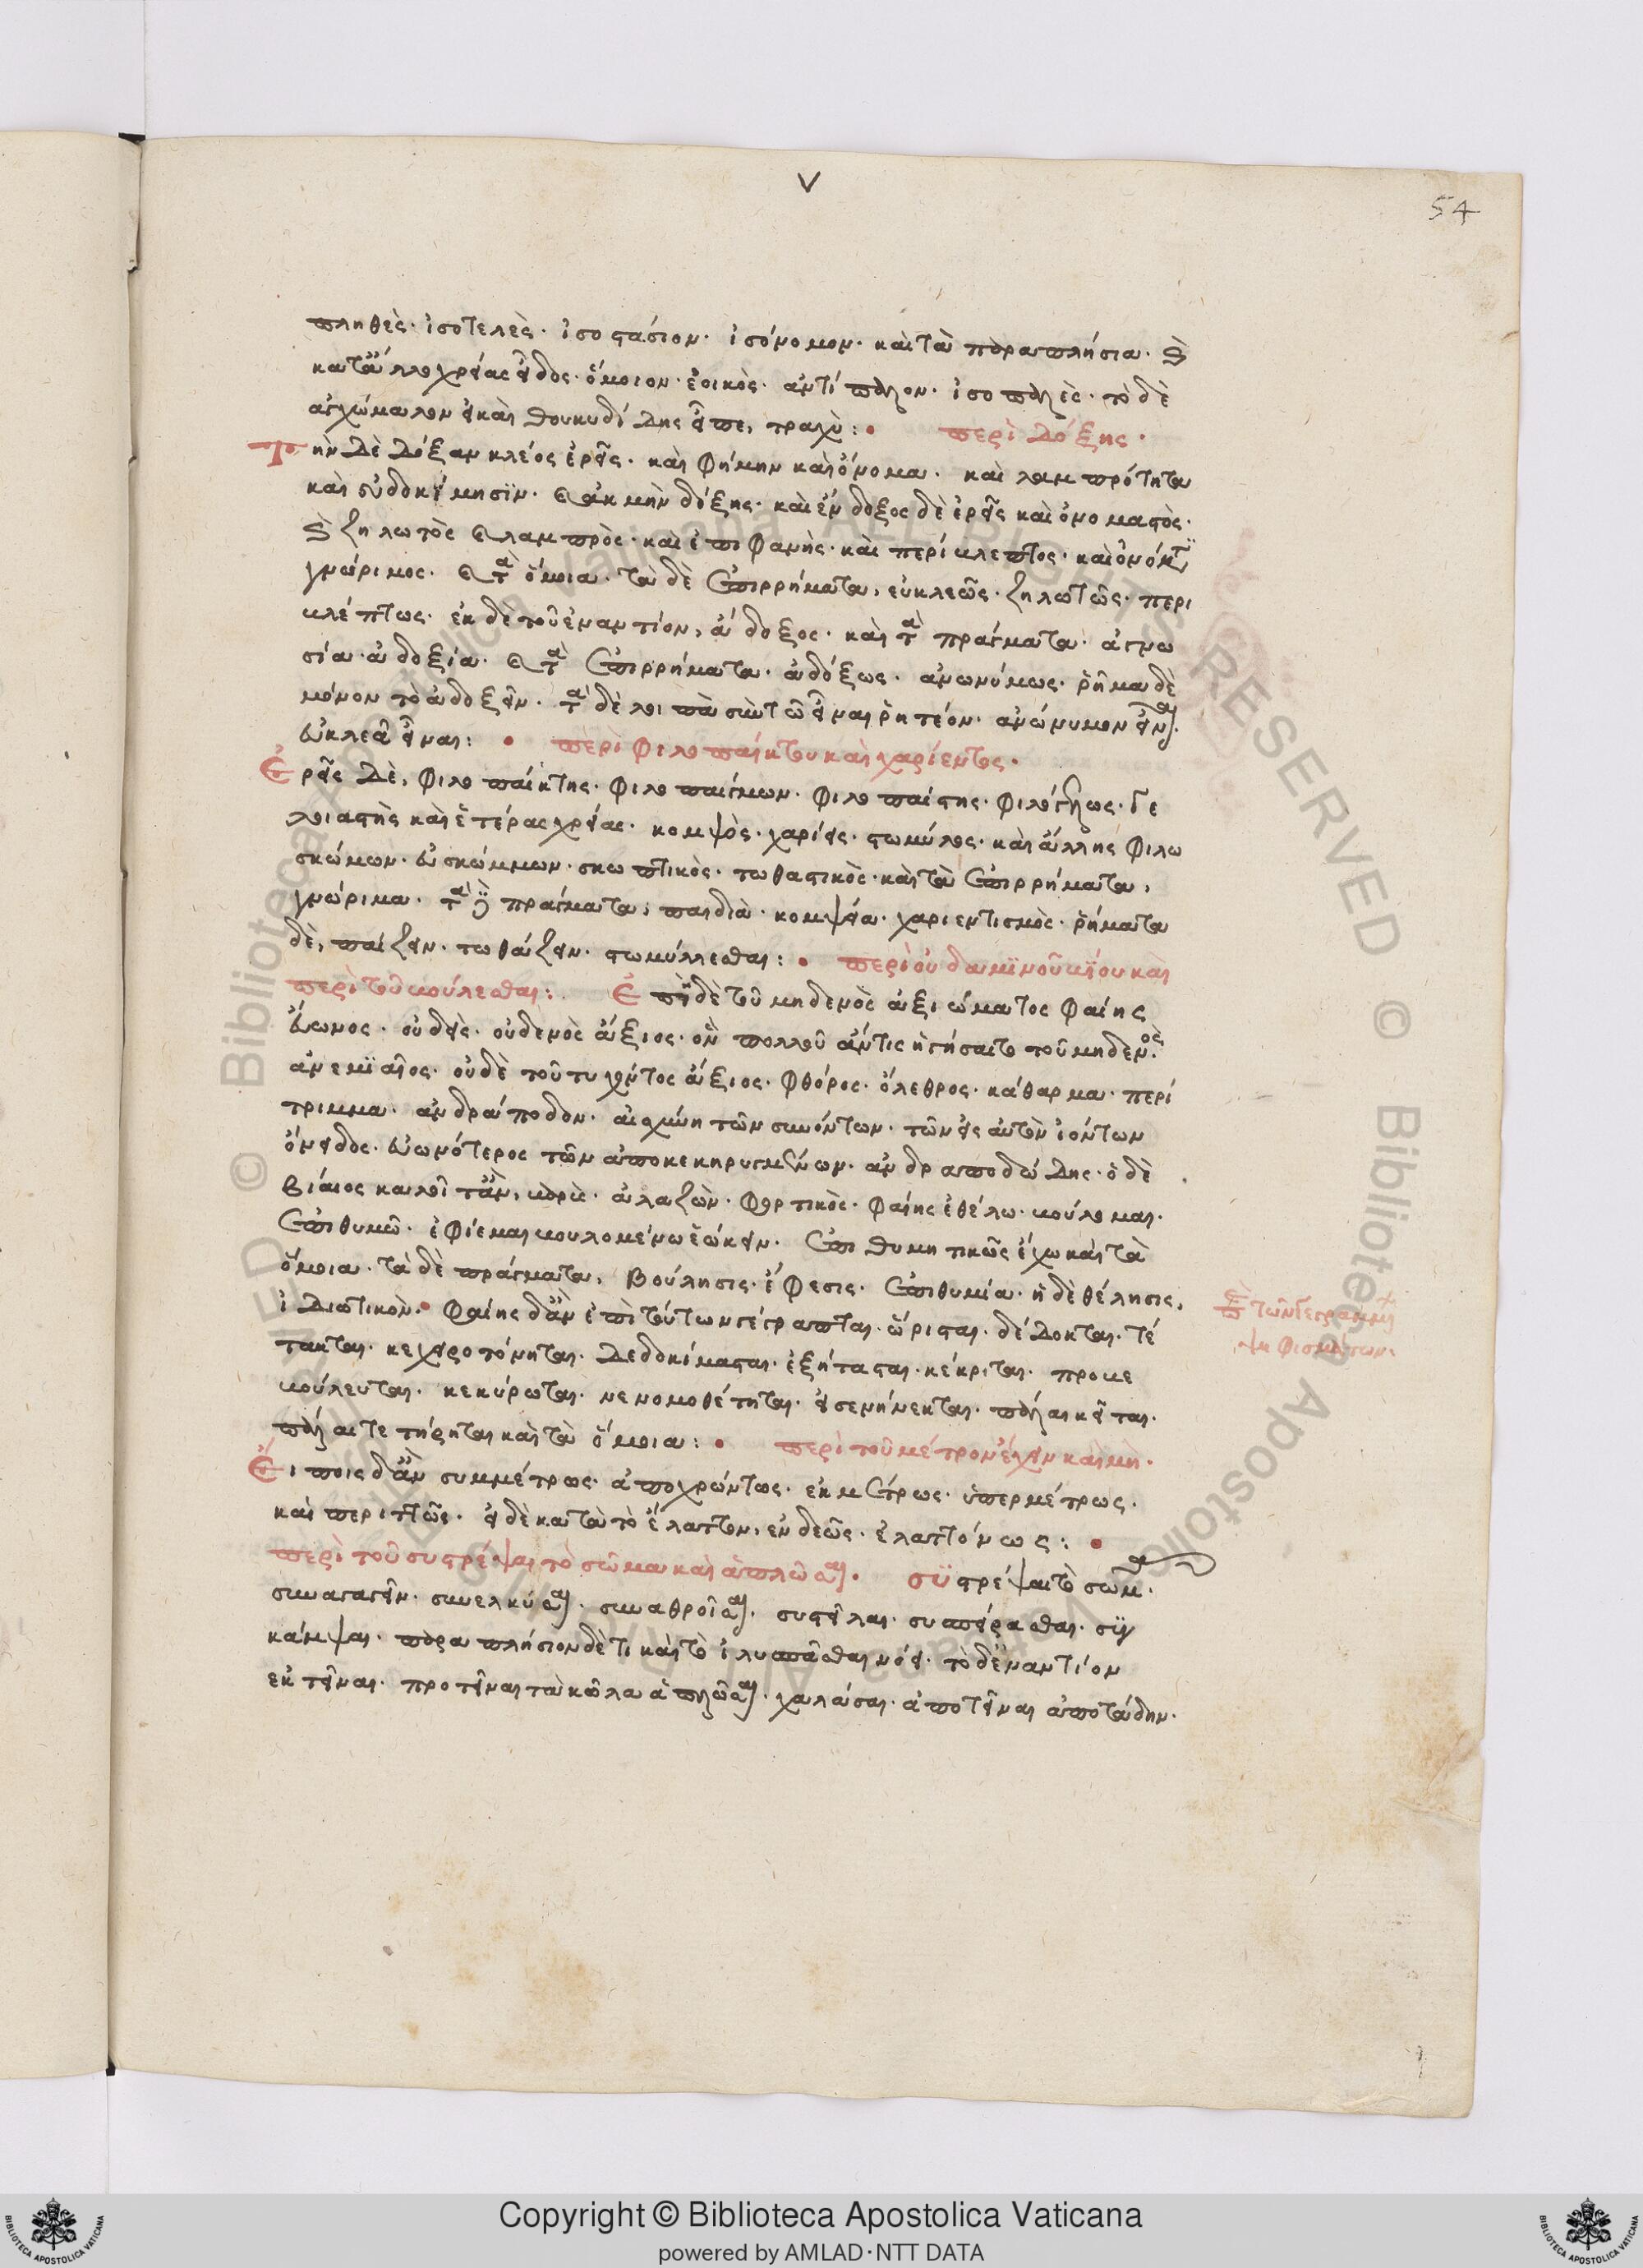 V
54
πληθὲς· ἰσοτελὲς· ἰσοστάσιον· ἰσόνομον· καὶ τὰ παραπλήσια· καὶ
κατ' ἄλλο χρείας εἶδος· ὅμοιον· ἐοικὸς· ἀντίπαλον· ἰσοπαλές· τὸ δὲ
ἀγχώμαλον εἰ καὶ θουκυδίδης εἶπε, τραχύ: περὶ δόξης·
Τὴν δὲ δόξαν κλέος ἐρεῖς· καὶ φήμην καὶ ὄνομα· καὶ λαμπρότητα
καὶ εὐδοκίμησϊν· καὶ ἀκμὴν δόξης· καὶ ἔνδοξος δὲ ἐρεῖς καὶ ὀνομαστὸς·
καὶ ζηλωτὸς καὶ λαμπρὸς· καὶ ἐπιφανής· καὶ περίβλεπτος· καὶ
γνώριμος· καὶ τὰ ὅμοια· τὰ δὲ ἐπιρρήματα, εὐκλεῶς· ζηλωτῶς· περι
βλέπτως· ἐκ δὲ τοῦ ἐναντίον, ἄδοξος· καὶ τὰ πράγματα· ἀγνω
σία· ἀδοξία· καὶ τὰ ἐπιρρήματα· ἀδόξως· ἀνωνύμως· ῥῆμα δὲ
μόνον τὸ ἀδοξεῖν· τὰ δὲ λοιπὰ σὺν τῶ εἶναι ῥητέον· ἀνώνυμον εἶναι·
ἀκλεᾶ εἶναι: περὶ φιλοπαίκτου καὶ χαρίεντος·
Ἐρεῖς δὲ, φιλοπαίκτης· φιλοπαίγμων· φιλοπαίστης· φιλόγελως· γε
λοιαστὴς καὶ ἑτέρας χρείας· κομψὸς· χαρίεις· στωμύλος· καὶ ἄλλης φιλο
σκώμων· εὐσκώμμων· σκωπτικὸς· τωθαστικὸς· καὶ τὰ ἐπιρρήματα,
γνώριμα· τὰ δὲ πράγματα, παιδιὰ· κομψεία· χαριεντισμὸς· ῥήματα
δὲ, παίζειν· τωθάζειν· στωμύλλεσθαι: περὶ οὐδαμϊνοῦ βϊου καὶ
περὶ τοῦ βούλεσθαι: Ἐπὶ δὲ τοῦ μηδενὸς ἀξιώματος φαίης
ἄωνος· οὐδεὶς· οὐδενὸς ἄξιος· ὃν πολλοῦ ἄν τις ἡγήσαιτο τοῦ μηδενός·
ἀνεμϊαῖος· οὐδὲ τοῦ τυχόντος ἄξιος· φθόρος· ὄλεθρος· κάθαρμα· περί
τριμμα· ἀνδράποδον· αἰσχύνη τῶν συνόντων· τῶν εἰς αὐτὸν ἰόντων
ὄνειδος· εὐωνότερος τῶν ἀποκεκηρυγμένων· ἀνδραποδώδης· ὁ δὲ
βίαιος καλοῖτ' ἂν, ὑβρις· ἀλαζὼν· φορτικὸς· φαίης ἐθέλω· βούλομαι·
ἐπιθυμῶ· ἐφίεμαι βουλομένω ἐώκειν· ἐπιθυμητικῶς ἔχω καὶ τὰ
ὅμοια· τὰ δὲ πράγματα, βούλησις· ἔφεσις· ἐπιθυμία· ἡ δὲ θέλησις,
ἰδιωτικὸν· φαίης δ' ἂν ἐπὶ τούτων γέγραπται· ὥρισται· δέδοκται· τέ
τακται· κεχειροτόνηται· δεδοκίμασται· ἐξήτασται· κέκριται· προβε
βούλευται· κεκύρωται· νενομοθέτηται· εἰσενήνεκται· πάλαι κεῖται·
πάλαι τετήρηται καὶ τὰ ὅμοια: περὶ τοῦ μέτρον ἔχειν καὶ μὴ·
Εἴποις δ' ἂν συμμέτρως· ἀποχρώντως· ἐκμέτρως· ὑπερμέτρως·
καὶ περιττῶς· εἰ δὲ κατὰ τὸ ἔλαττον, ἐνδεῶς· ἐλαττόνως:
περὶ τοῦ συστρέψαι τὸ σῶμα καὶ ἁπλῶσαι· σϋστρέψαι τὸ σῶμα·
συναγαγεῖν· συνελκύσαι· συναθροῖσαι· συστεῖλαι· συσπειρᾶσθαι· σϋγ
κάμψαι· παραπλήσιον δέ τι καὶ τὸ ἰλυσπᾶσθαι νόει· τὸ δ' ἐναντίον
ἐκτεῖναι· προτεῖναι τὰ κῶλα ἁπλῶσαι· χαλάσαι· ἀποτεῖναι ἀποτάδην·
ἐπὶ τῶν γεγραμμένων
ψηφισμάτων·
Copyright © Biblioteca Apostolica Vaticana
powered by AMLAD·NTT DATA